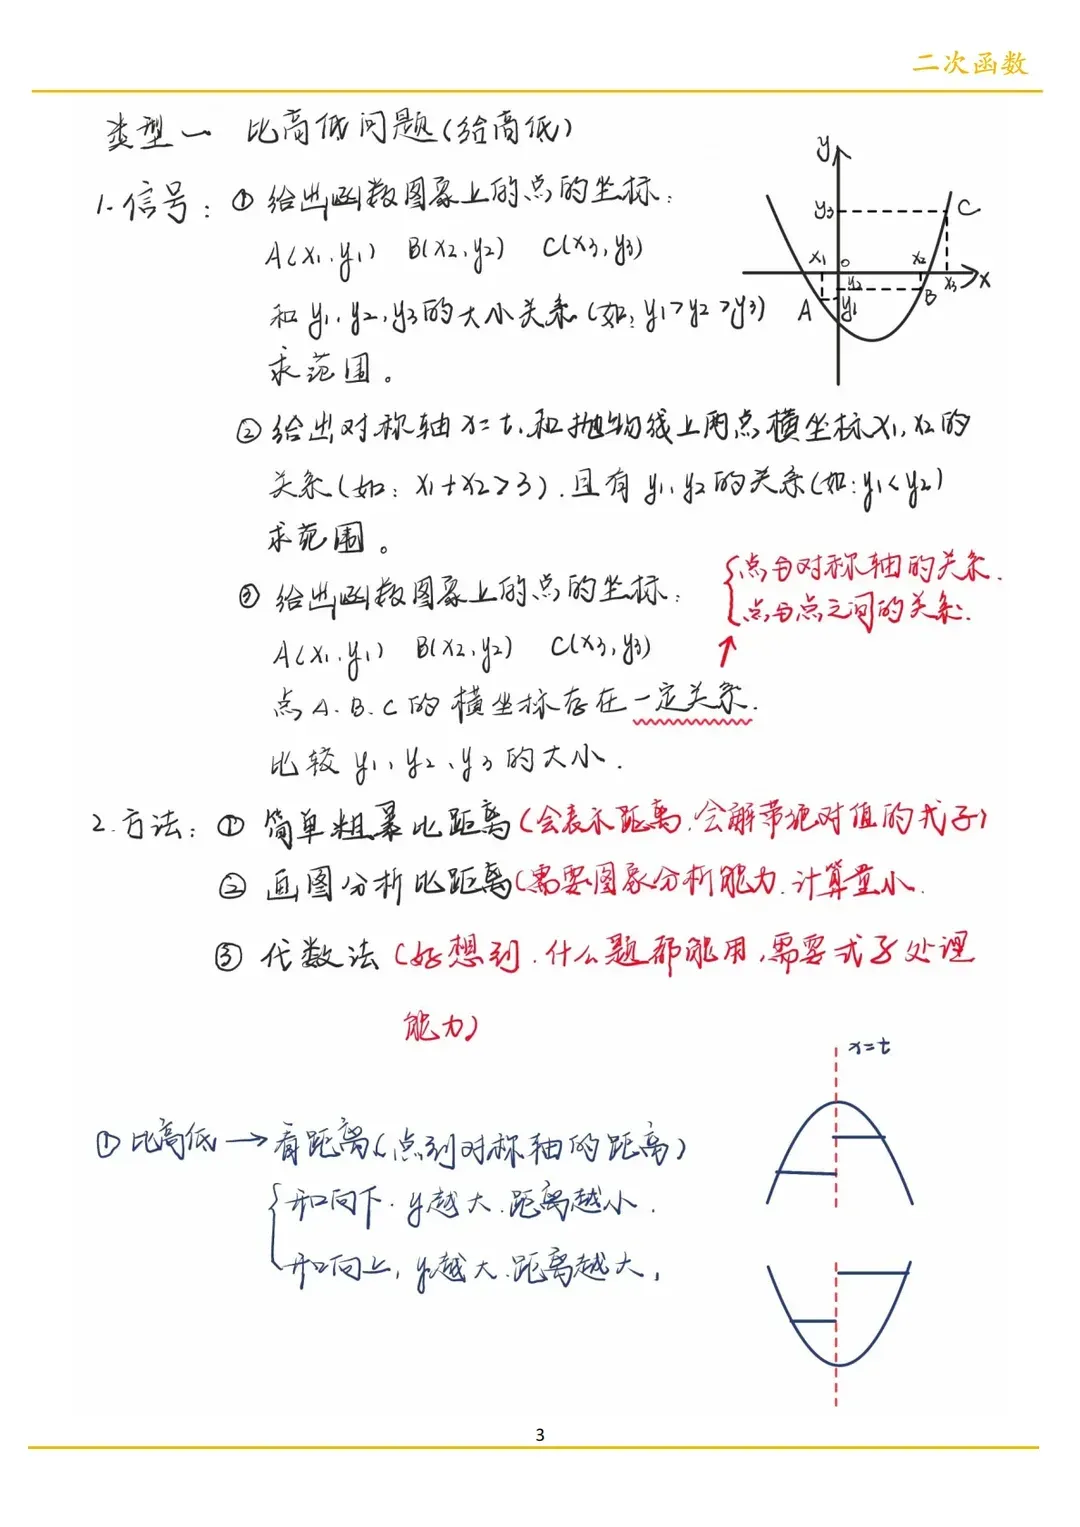 二次函数
类型一 比高低问题(给高低)
1.信号: ① 给出函数图象上的点的坐标:
A(x1,y1) B(x2,y2) C(x3,y3)
和 y1,y2,y3的大小关系(如: y1>y2>y3)
求范围。
y
y3
C
x1
o
x2
y2
x3
x
A
y1
B
② 给出对称轴 x=t,和抛物线上两点横坐标x1,x2的
关系(如: x1+x2>3).且有 y1,y2的关系(如:y1<y2)
求范围。
③ 给出函数图象上的点的坐标:
A(x1,y1) B(x2,y2) C(x3,y3)
点A.B.C的横坐标存在一定关系.
比较 y1、y2、y3的大小.
点与对称轴的关系.
点与点之间的关系.
2.方法: ① 简单粗暴比距离(会表示距离.会解带绝对值的式子)
② 画图分析比距离(需要图象分析能力.计算量小.
③ 代数法(好想到.什么题都能用,需要式子处理
能力)
x=t
① 比高低→看距离(点到对称轴的距离)
开口向下.y越大.距离越小.
开口向上,y越大.距离越大,
3